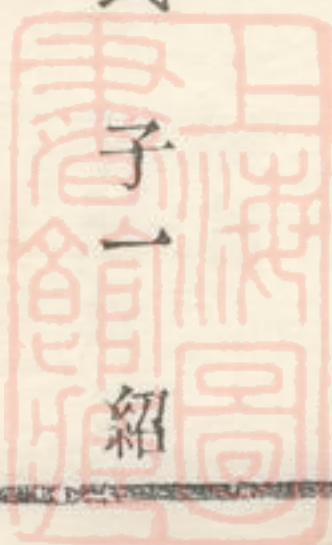 子一 紹
上海圖
書館藏